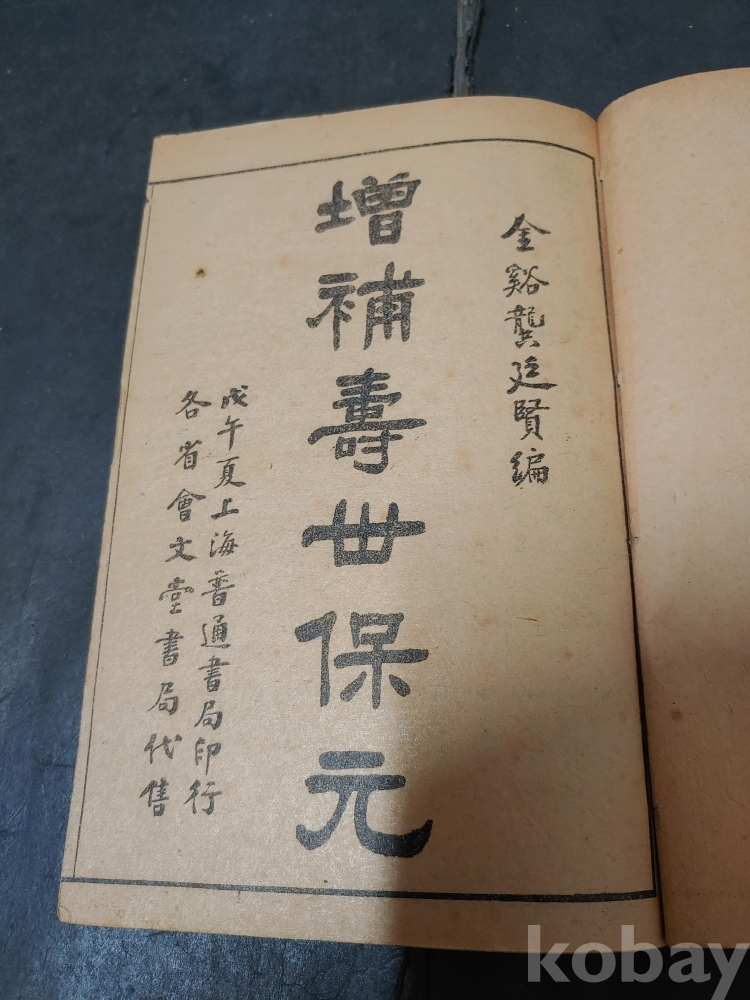 金谿龔廷賢編
增補壽世保元
戊午夏上海普通書局印行
各省會文堂書局代售
kobay